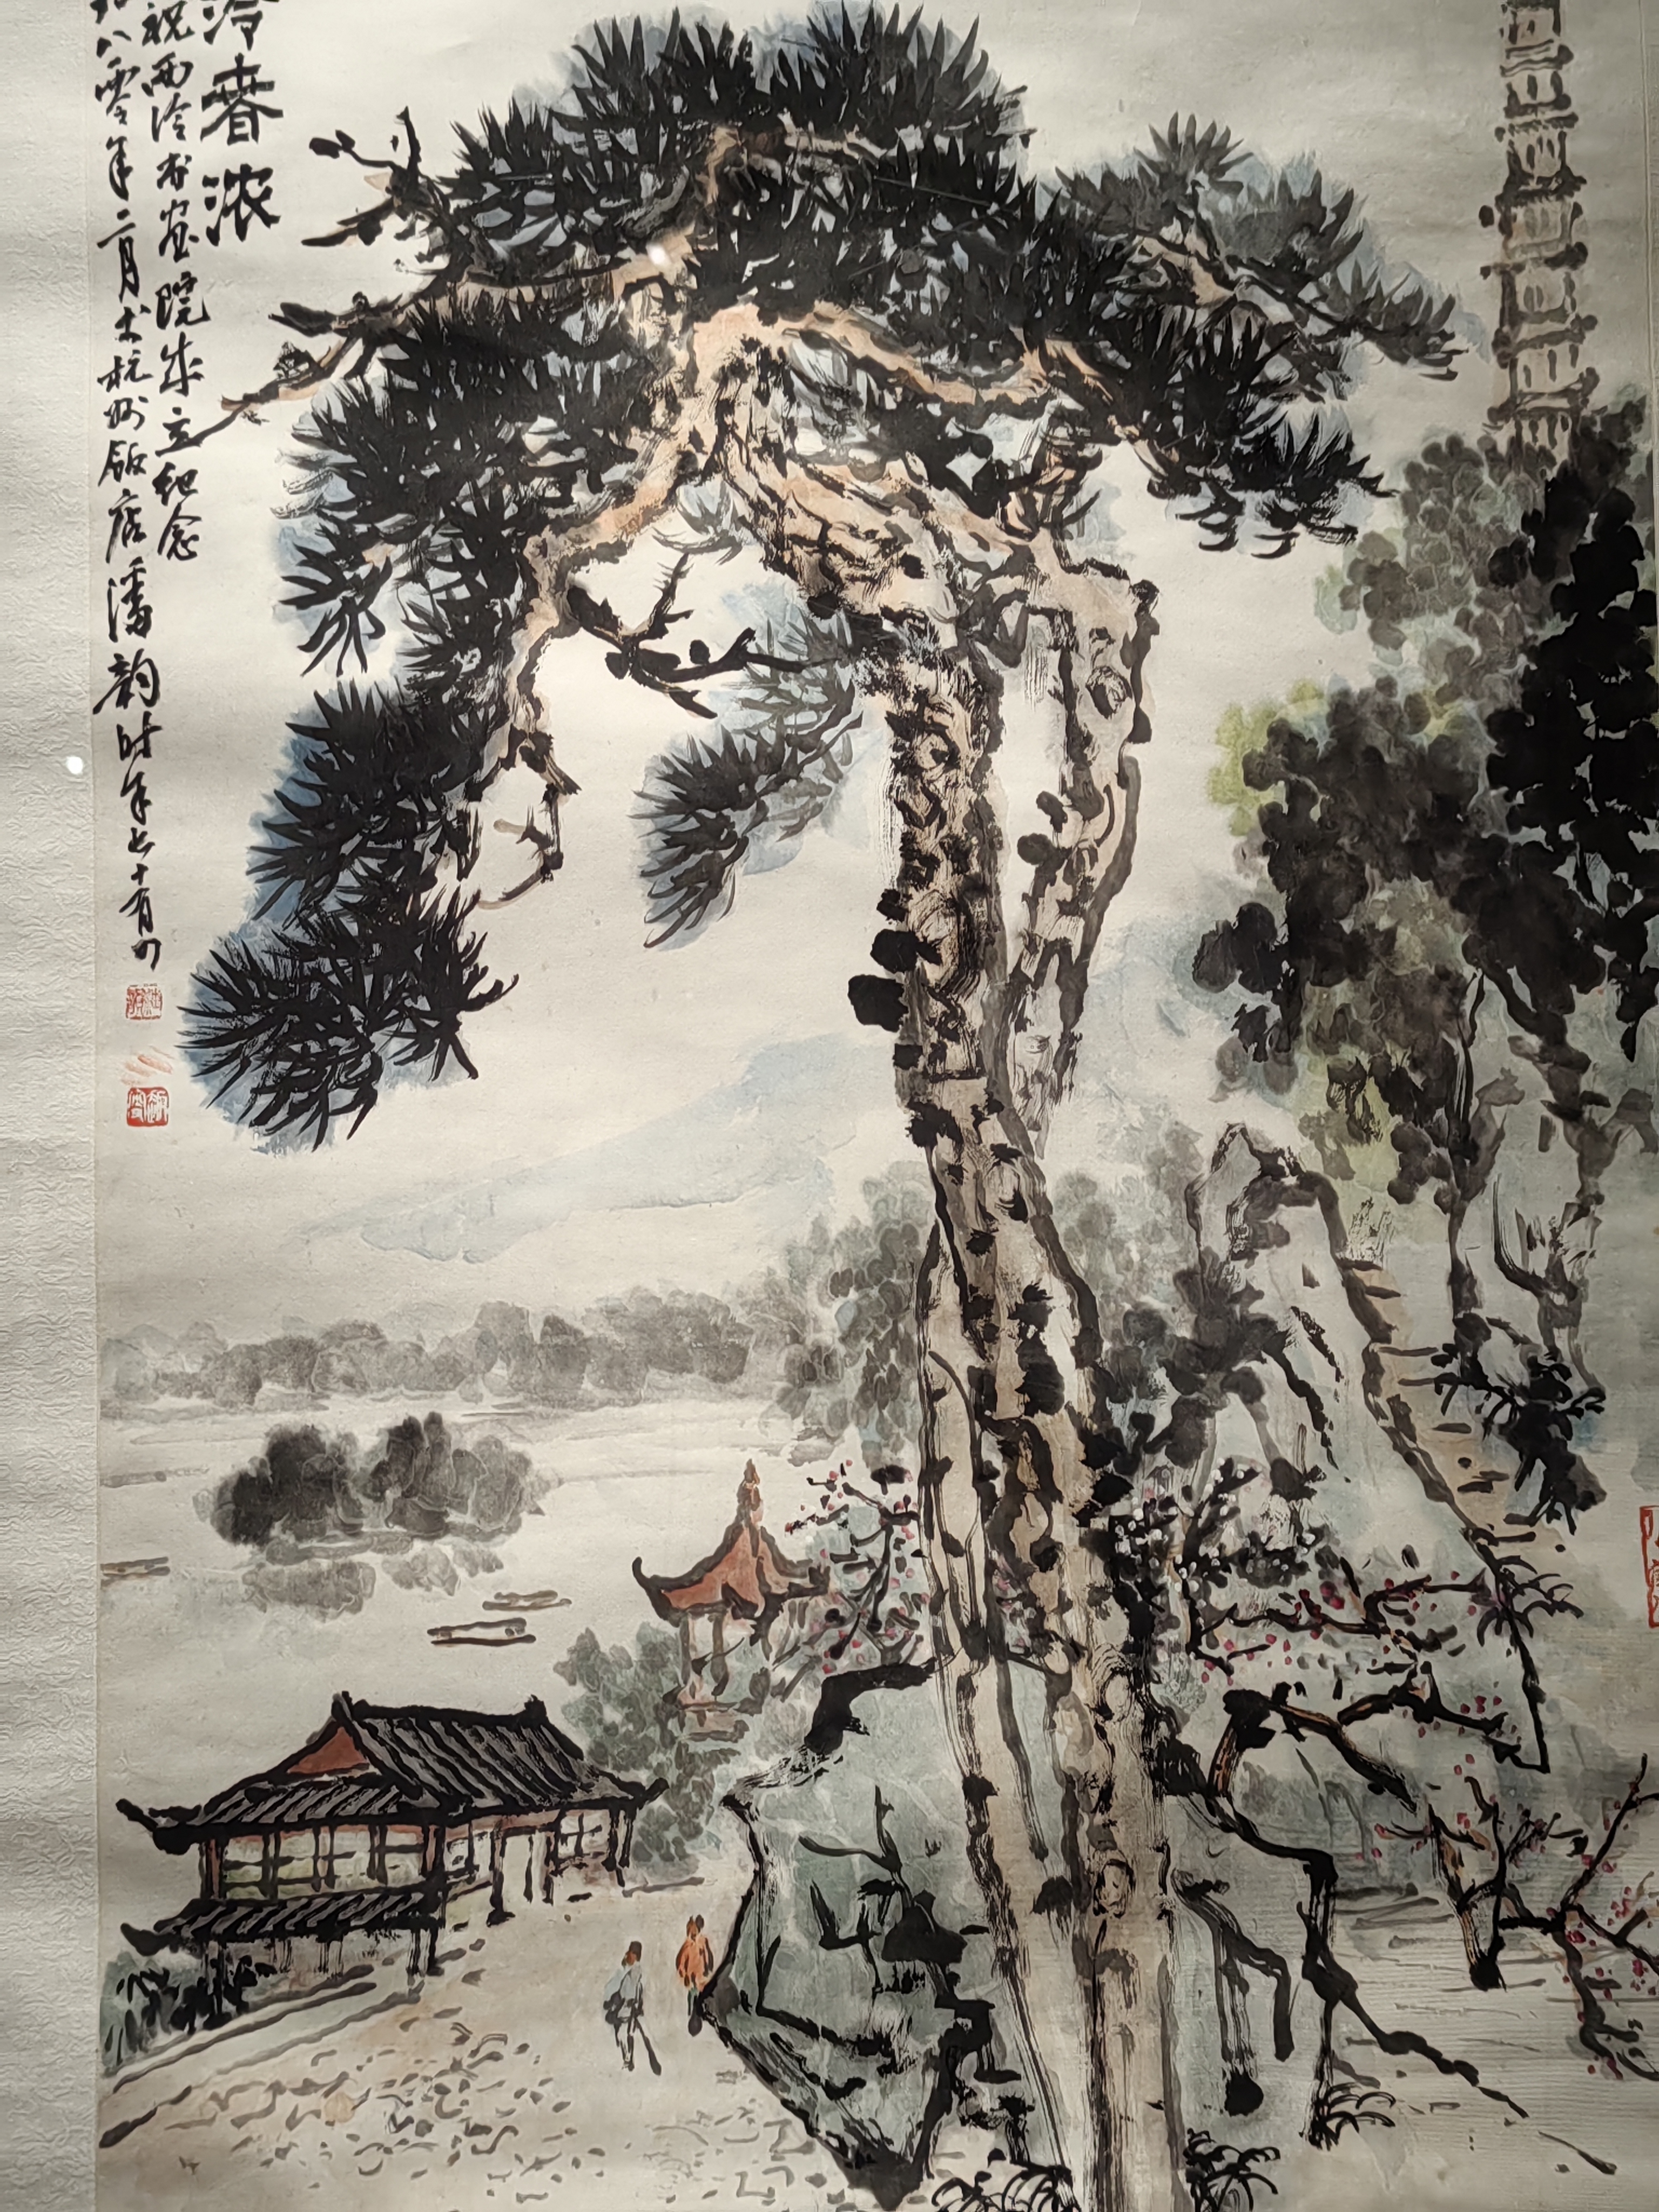 泠春浓
祝西泠书画院成立纪念
九八零年二月于杭州饭店潘韵时年七十有四